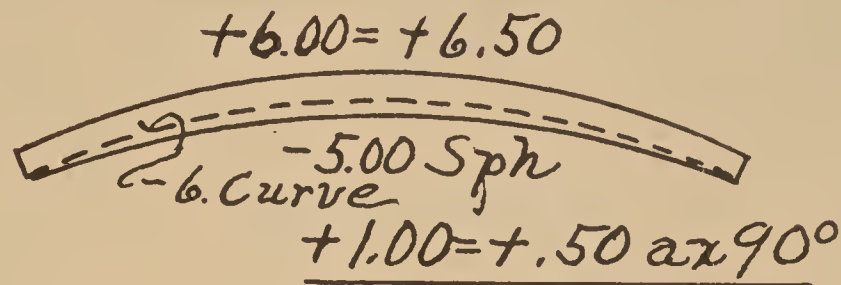 +6.00=+6.50
-5.00 Sph
-6.Curve
+1.00=+.50 ax 90°